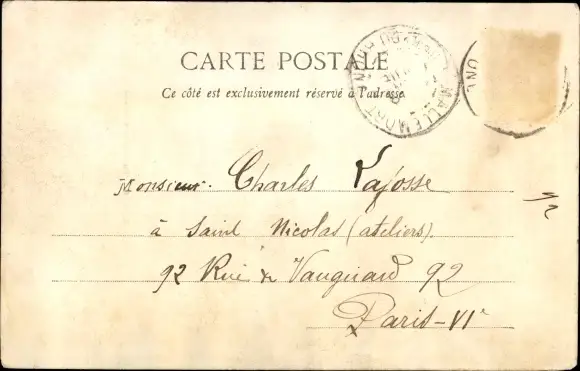 CARTE POSTALE
Ce côté est exclusivement réservé à l'adresse
MALLEMORT
Monsieur. Charles Lafosse
à Saint Nicolas (ateliers).
92 Rue de Vaugirard 92
Paris-VIe
92